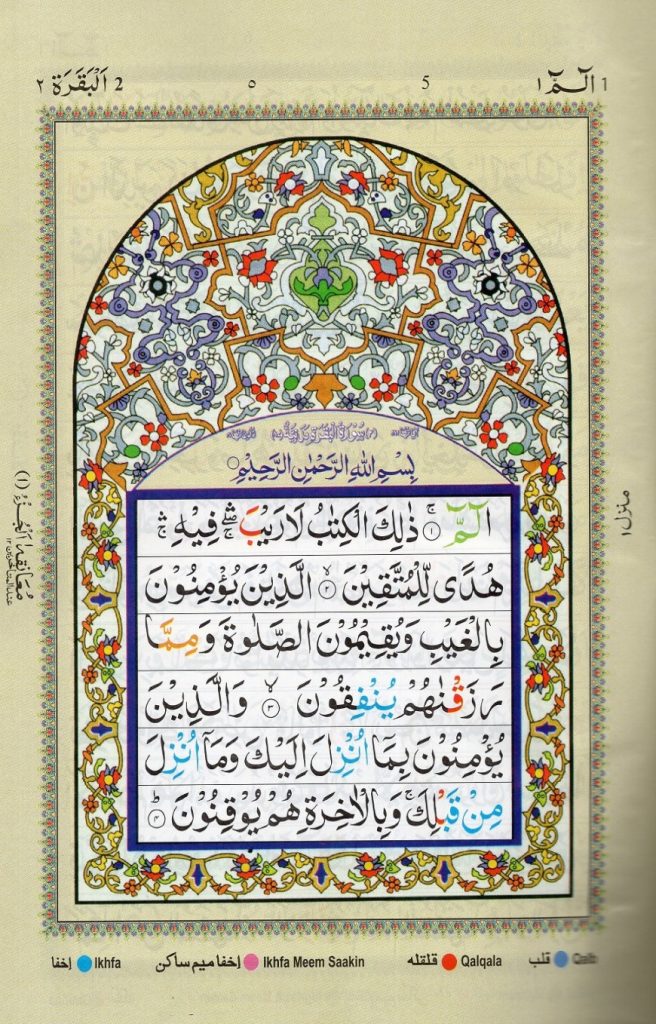 الٓـمّٓ ١ 1 5 ٥ 2 اَلْبَقَرَة ٢
بِسْمِ اللّٰهِ الرَّحْمٰنِ الرَّحِيْمِ
الٓمّٓ ۚ ﴿١﴾ ذٰلِكَ الْكِتٰبُ لَا رَيْبَ ۛۖ فِيْهِ ۛۚ
هُدًى لِّلْمُتَّقِيْنَ ۙ ﴿٢﴾ الَّذِيْنَ يُؤْمِنُوْنَ
بِالْغَيْبِ وَيُقِيْمُوْنَ الصَّلٰوةَ وَمِمَّا
رَزَقْنٰهُمْ يُنْفِقُوْنَ ۙ ﴿٣﴾ وَالَّذِيْنَ
يُؤْمِنُوْنَ بِمَآ اُنْزِلَ اِلَيْكَ وَمَآ اُنْزِلَ
مِنْ قَبْلِكَ ۚ وَبِالْاٰخِرَةِ هُمْ يُوْقِنُوْنَ ؕ ﴿٤﴾
منزل ١
مُعَانِقَة
(١)
قلب Qalb قلقله Qalqala إخفا ميم ساكن Ikhfa Meem Saakin إخفا Ikhfa